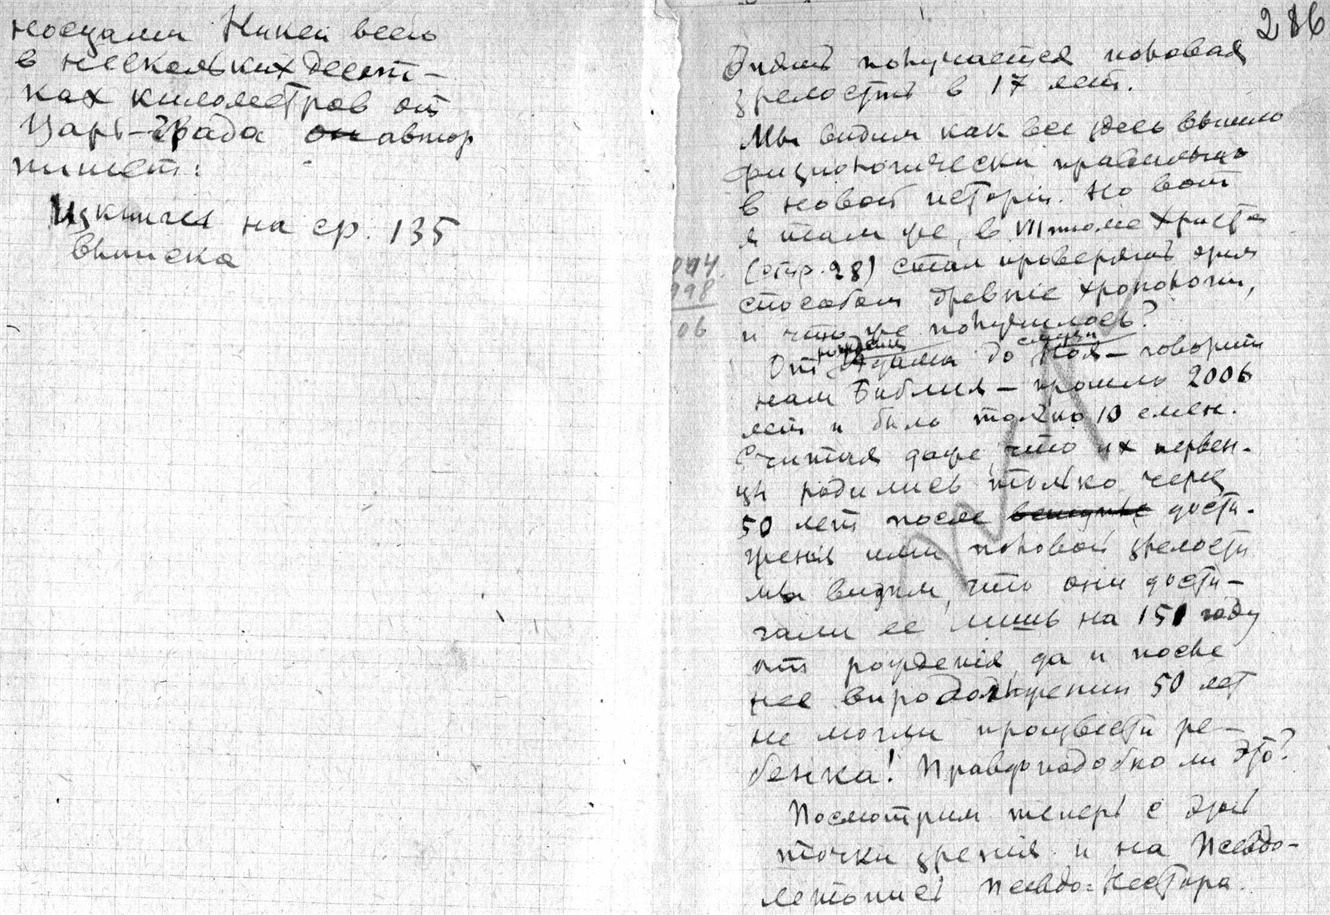 носцами Никеи всего
в нескольких десят-
ках километров от
Царь-Града он автор
пишет:
Из книги на ср. 135
выписка
286
Опять получается половая
зрелость в 17 лет.
Мы видим как все здесь вышло
физиологически правильно
в новой истории. Но вот
я там же, в VII томе Христа
(стр. 28) стал проверять этим
способом древние хронологии,
и что же получилось?
рождения смерти
От Адама до Ноя — говорит
нам Библия — прошло 2006
лет и было только 10 смен.
Считая даже, что их первен-
цы родились только через
50 лет после дости-
жения ими половой зрелости
мы видим, что они дости-
гали ее лишь на 151 году
от рожденія да и после
нее в продолжении 50 лет
не могли произвести ре-
бенка! Правдоподобно ли это?
Посмотрим теперь с этой
точки зрения и на Псевдо-
летопись Псевдо-Нестора.